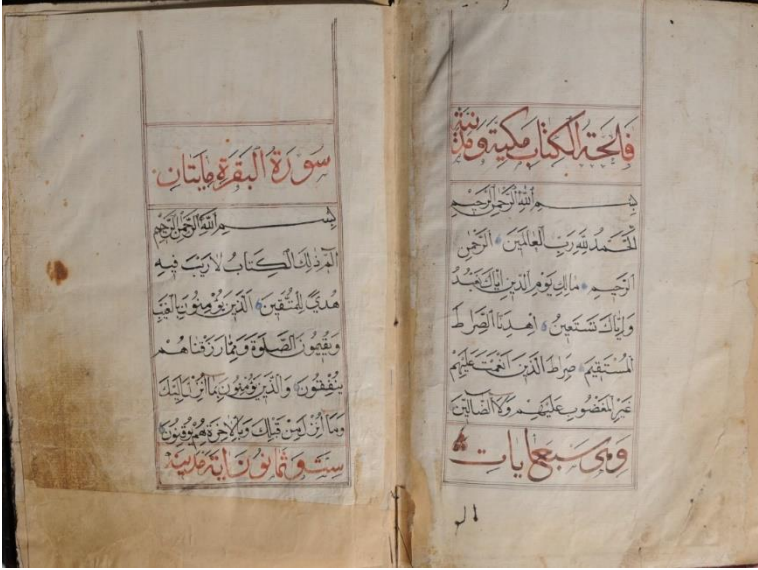 فاتحة الكتاب مكية ومدنية
بسم الله الرحمن الرحيم
الحمد لله رب العالمين الرحمن
الرحيم مالك يوم الدين اياك نعبد
واياك نستعين اهدنا الصراط
المستقيم صراط الذين انعمت عليهم
غير المغضوب عليهم ولا الضالين
وهي سبع ايات
الم
سورة البقرة مايتان
بسم الله الرحمن الرحيم
الم ذلك الكتاب لا ريب فيه
هدى للمتقين الذين يؤمنون بالغيب
ويقيمون الصلوة ومما رزقناهم
ينفقون والذين يؤمنون بما انزل اليك
وما انزل من قبلك وبالاخرة هم يوقنون
ست وثمانون اية مدنية